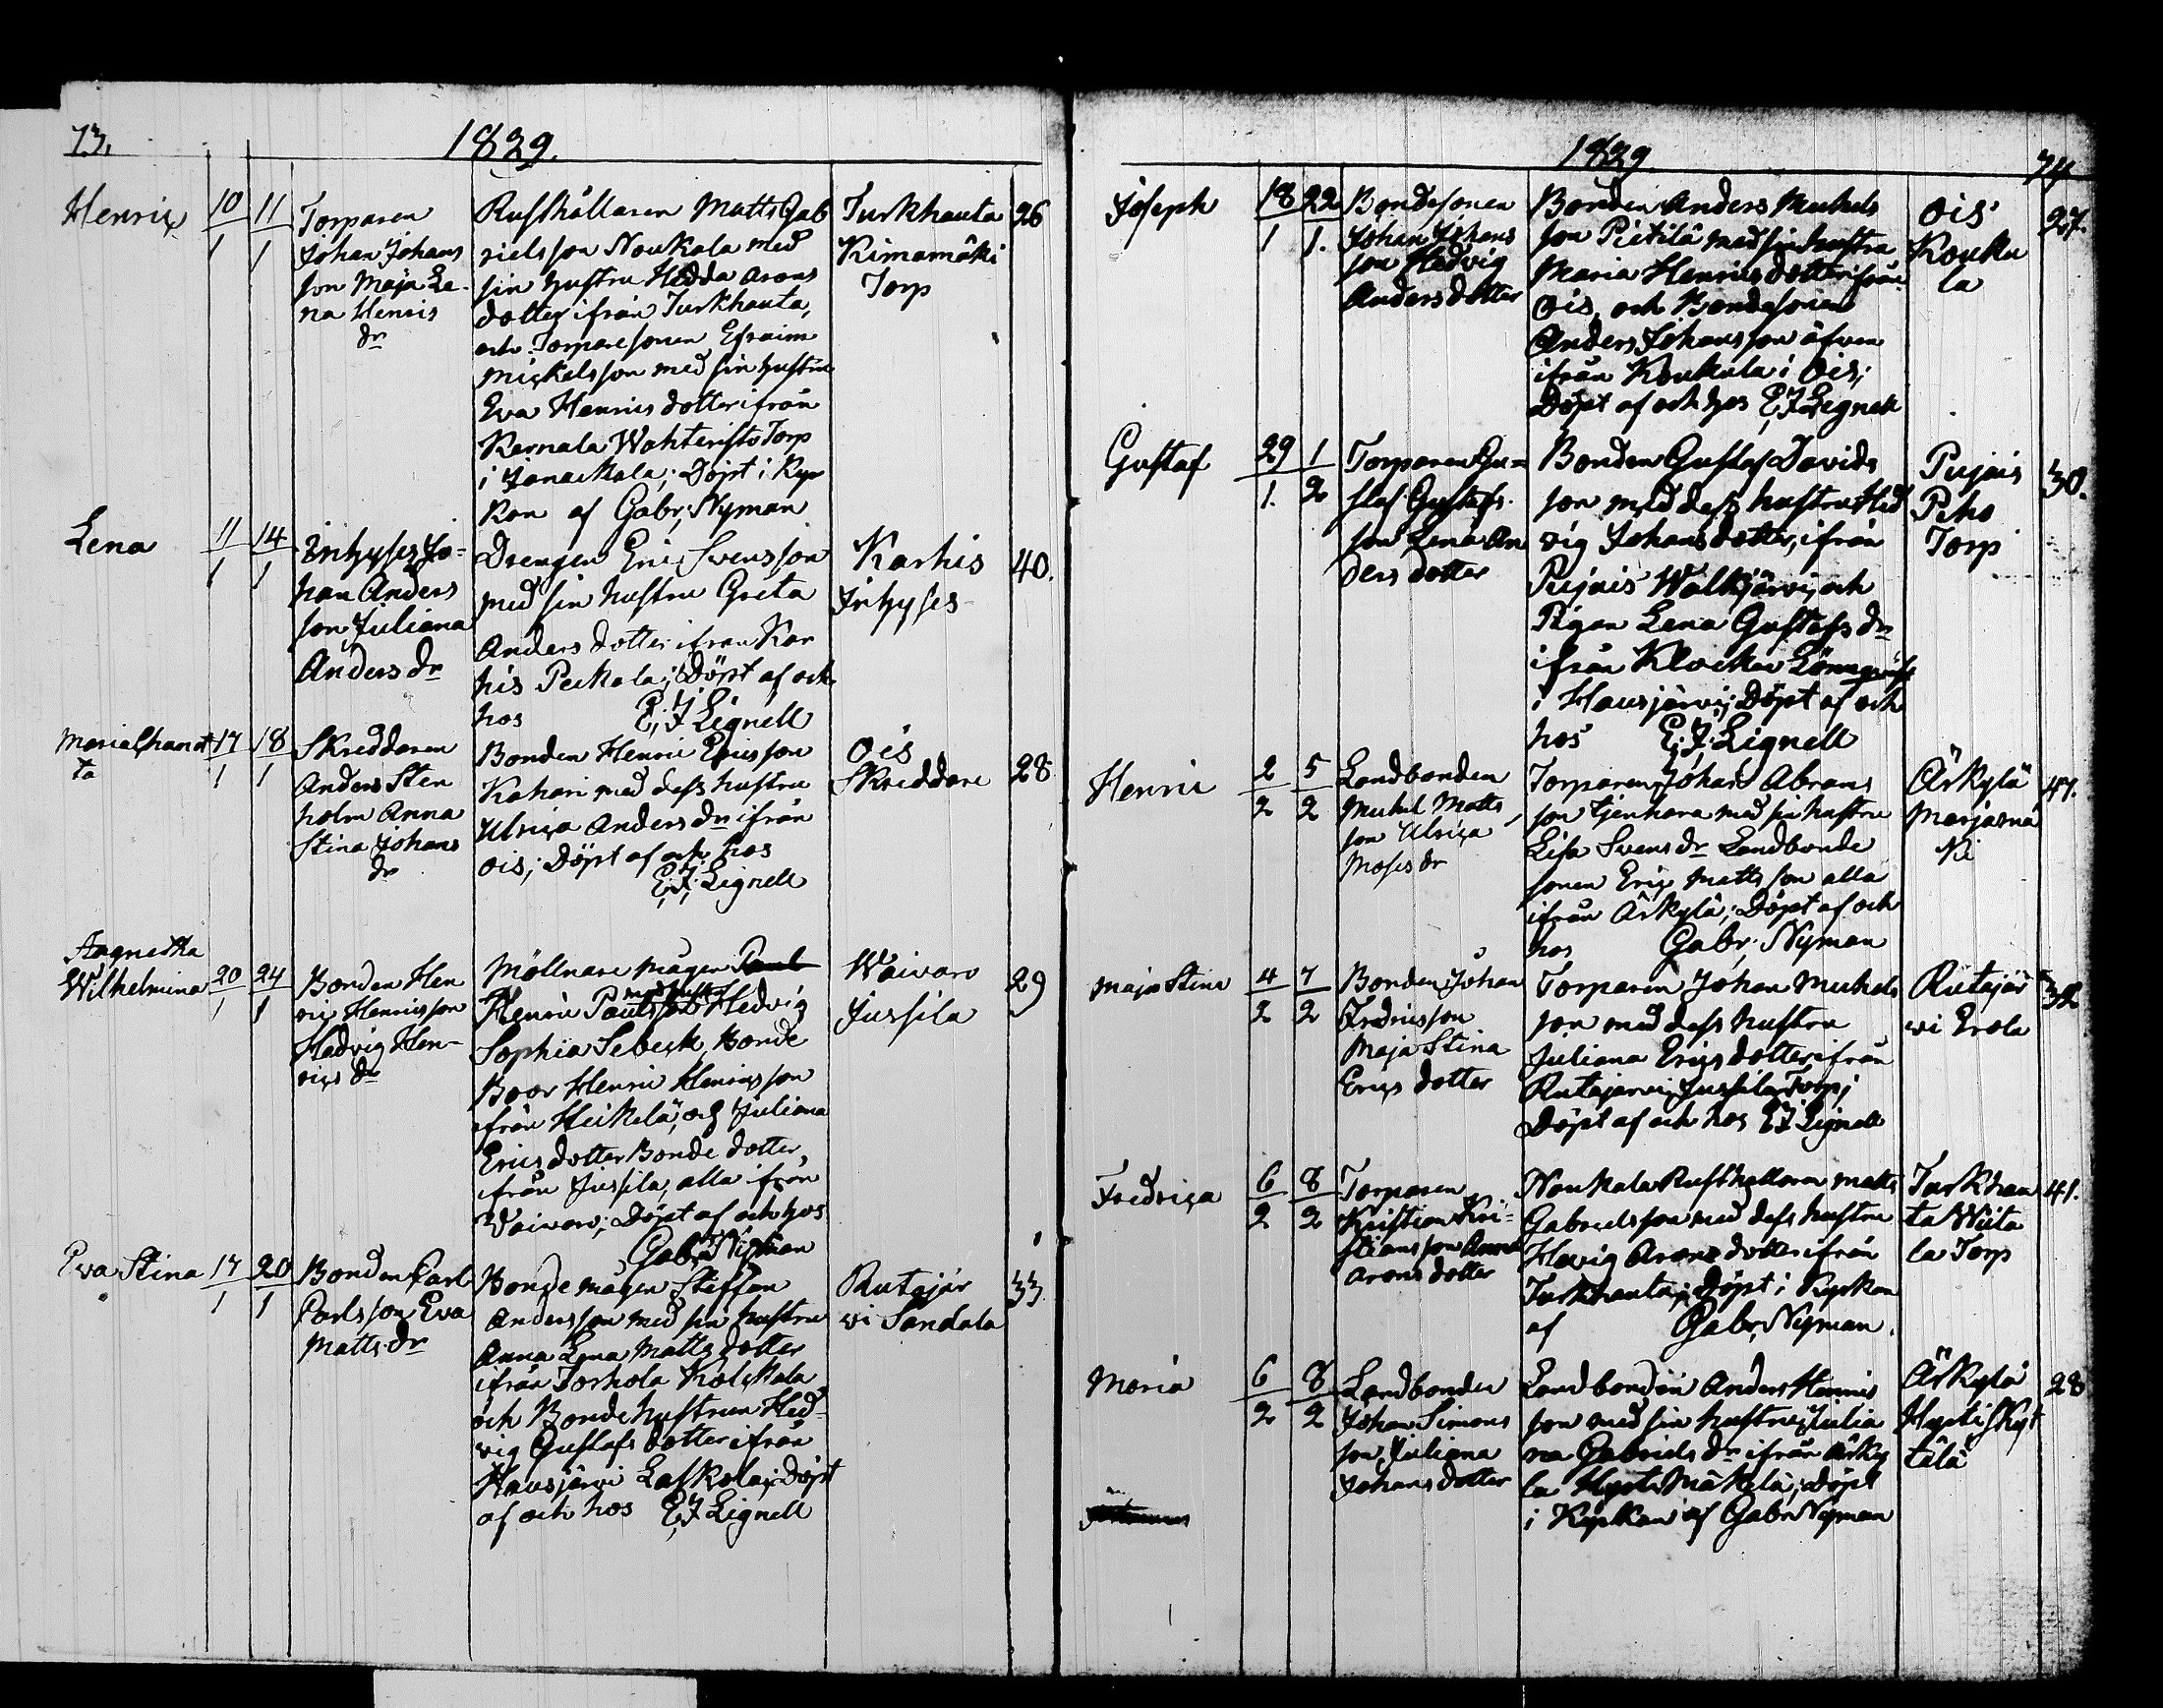 73.
1829.
Henric
10/1
11/1
Torparen
Johan Johans
son Maja Le-
na Henrics
dr
Rusthållaren Matts Gab
rielsson Noukola med
sin hustru Hedda Arons
dotter ifrån Turkhauta,
och Torparesonen Efraim
Mickelsson med sin hustru
Eva Henrics dotter ifrån
Karnala Torp
i Janackala; Döpt i Kyr
kan af Gabr; Nyman
Turkhauta
Kimamäki
Torp
26
Lena
11/1
14/1
Inhyses Jo-
han Anders
son Juliana
Anders dr
Drengen Eric Svensson
med sin hustru Greta
Anders dotter ifrån Kar
his Peckola; Döpt af och
hos E; J Lignell
Karhis
Inhyses
40.
Maria Charlot
ta
17/1
18/1
Skreddaren
Anders Sten
holm Anna
Stina Johans
dr
Bonden Henric Ericsson
Kahari med dess hustru
Ulrica Anders dr ifrån
Ois; Döpt af och hos
E; J; Lignell
Ois
Skreddare
28
Aagnetha
Wilhelmina
20/1
24/1
Bonden Hen
ric Henricsson
Hedvig Hen-
rics dr
Möllnare mågen Paul
med hustru
Henric Paulsson Hedvig
Sophia Sebeck, Bonde
Bror Henric Henricsson
ifrån Heikelä, och Juliana
Erics dotter Bonde dotter,
ifrån Jussila, alla ifrån
Waivaro; Döpt af och hos
Gabr; Nyman
Waivaro
Jussila
29
Eva Stina
17/1
20/1
Bonden Carl
Carlsson Eva
Matts dr
Bonde mågen Steffan
Andersson med sin hustru
Anna Lena Matts dotter
ifrån Torhola
och Bonde hustrun Hed-
vig Gustafs dotter ifrån
Hausjärvi Laskola; Döpt
af och hos E; J Lignell
Rutajär
vi Sandala
33
1829
74
Joseph
18/1
22/1.
Bondesonen
Johan Johans
son Hedvig
Anders dotter
Bonden Anders Michels
son Pietilä med sin hustru
Maria Henrics dotter ifrån
Ois, och Bondesonen
Anders Johansson äfven
ifrån Koukula i Ois;
Döpt af och hos E; J Lignell
Ois
Kouku
la
27.
Gustaf
29/1.
1/2
Torparen Gu=
staf Gustafs
son Lena An
ders dotter
Bonden Gustaf Davids
son med dess hustru Hed
vig Johans dotter, ifrån
Pujais Walkjärvi, och
Pigan Lena Gustafs dr
ifrån Klockar
i Hausjärvi; Döpt af och
hos E; J; Lignell
Pujais
Peho
Torp
30.
Henric
2/2
5/2
Landbonden
Michel Matts
son Ulrica
Moses dr
Torparen Johan Abrams
son med sin hustru
Lisa Svens dr Landbonde
sonen Eric Mattsson alla
ifrån Ärkylä; Döpt af och
hos Gabr; Nyman
Ärkylä
Marjamä
ki
47.
Maja Stina
4/2
7/2
Bonden Johan
Fredricsson
Maja Stina
Erics dotter
Torparen Johan Michels
son med dess hustru
Juliana Erics dotter ifrån
Rutajarvi Jussila Torp;
Döpt af och hos E; J Lignell
Rutajär
vi Erola
32
Fredrica
6/2
8/2
Torparen
Kristian Kri-
stiansson Anna
Arons dotter
Noukala Rusthållaren Matts
Gabrielsson med dess hustru
Hevig Arons dotter ifrån
Turkhauta; Döpt i Kyrkan
af Gabr, Nyman.
Turkhau
ta Wiita
la Torp
41.
Maria
6/2
8/2
Landbonden
Johan Simons
son Juliana
Johans dotter
Landbonden Anders Henrics
son med sin hustru Julia
na Gabriels dr ifrån Ärky
lä Hysti Mäkelä; Döpt
i Kyrkan af Gabr Nyman
Ärkylä
28